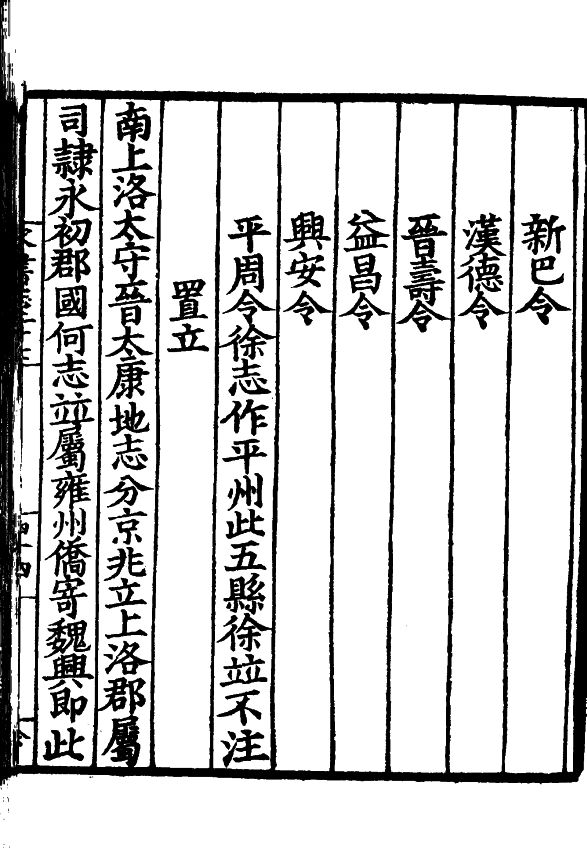 新巴令
漢德令
晉壽令
益昌令
興安令
平周令徐志作平州此五縣徐竝不注
置立
南上洛太守晉太康地志分京兆立上洛郡屬
司隸永初郡國何志竝屬雍州僑寄魏興即此